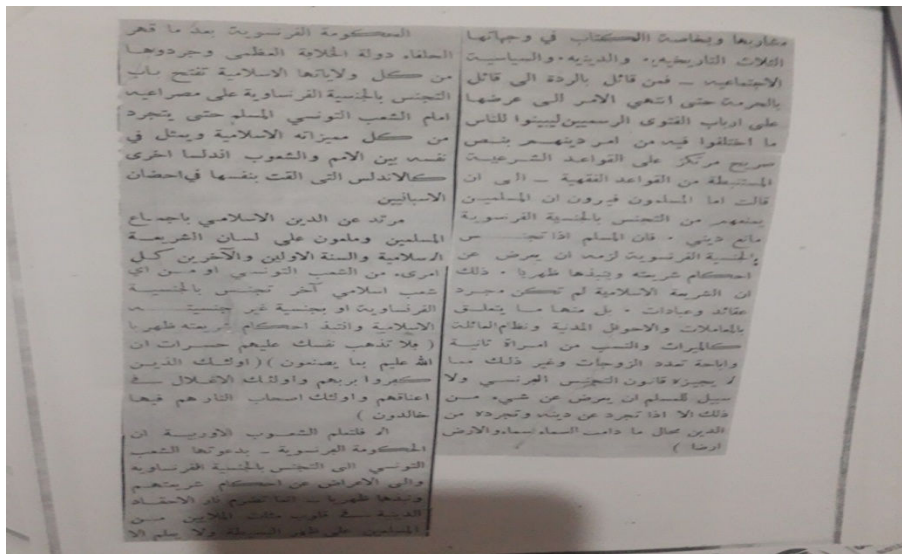 مشاربها وبخاصة الكتاب في وجهاتها
الثلاث التاريخيه، والدينيه، والسياسية
الاجتماعيه — فمن قائل بالردة الى قائل
بالحرمة حتى انتهي الامر الى عرضها
على ارباب الفتوى الرسميين ليبينوا للناس
ما اختلفوا فيه من امر دينهم بنص
صريح مرتكز على القواعد الشرعية
المستنبطة من القواعد الفقهية — الى ان
قالت اما المسلمون فيرون ان المسلمين
يمنعهم من التجنس بالجنسية الفرنسوية
مانع ديني ٠ فان المسلم اذا تجنس
بالجنسية الفرنسوية لزمه ان يعرض عن
احكام شريعته وينبذها ظهريا ٠ ذلك
ان الشريعة الاسلامية لم تكن مجرد
عقائد وعبادات ٠ بل منها ما يتعلق
بالمعاملات والاحوال المدنية ونظام العائلة
كالميراث والنسب من امراة ثانية
واباحة تعدد الزوجات وغير ذلك مما
لا يجيزه قانون التجنس الفرنسي ولا
سبيل للمسلم ان يعرض عن شيء من
ذلك الا اذا تجرد عن دينه وتجرده من
الدين محال ما دامت السماء سماء والارض
ارضا )
الحكومة الفرنسوية بعد ما قهر
الحلفاء دولة الخلافة العظمى وجردوها
من كل ولاياتها الاسلامية تفتح باب
التجنس بالجنسية الفرنساوية على مصراعيه
امام الشعب التونسي المسلم حتى يتجرد
من كل مميزاته الاسلامية ويمثل في
نفسه بين الامم والشعوب اندلسا اخرى
كالاندلس التى القت بنفسها في احضان
الاسبانيين
مرتد عن الدين الاسلامي باجماع
المسلمين وملعون على لسان الشريعة
الاسلامية والسنة الاولين والآخرين كل
امرىء من الشعب التونسي او من اي
شعب اسلامي آخر تجنس بالجنسية
الفرنساوية او بجنسية غير جنسيته
الاسلامية واتخذ احكام شريعته ظهريا
( فلا تذهب نفسك عليهم حسرات ان
الله عليم بما يصنعون ) ( اولئك الذين
كفروا بربهم واولئك الاغلال في
اعناقهم واولئك اصحاب النار هم فيها
خالدون )
الا فلتعلم الشعوب الاوربية ان
الحكومة الفرنسوية — بدعوتها الشعب
التونسي الى التجنس بالجنسية الفرنساويه
والى الاعراض عن احكام شريعتهم
ونبذها ظهريا — انما تضرم نار الاحقاد
الدينية في قلوب مئات الملايين من
المسلمين على ظهر البسيطة ولا يعلم الا